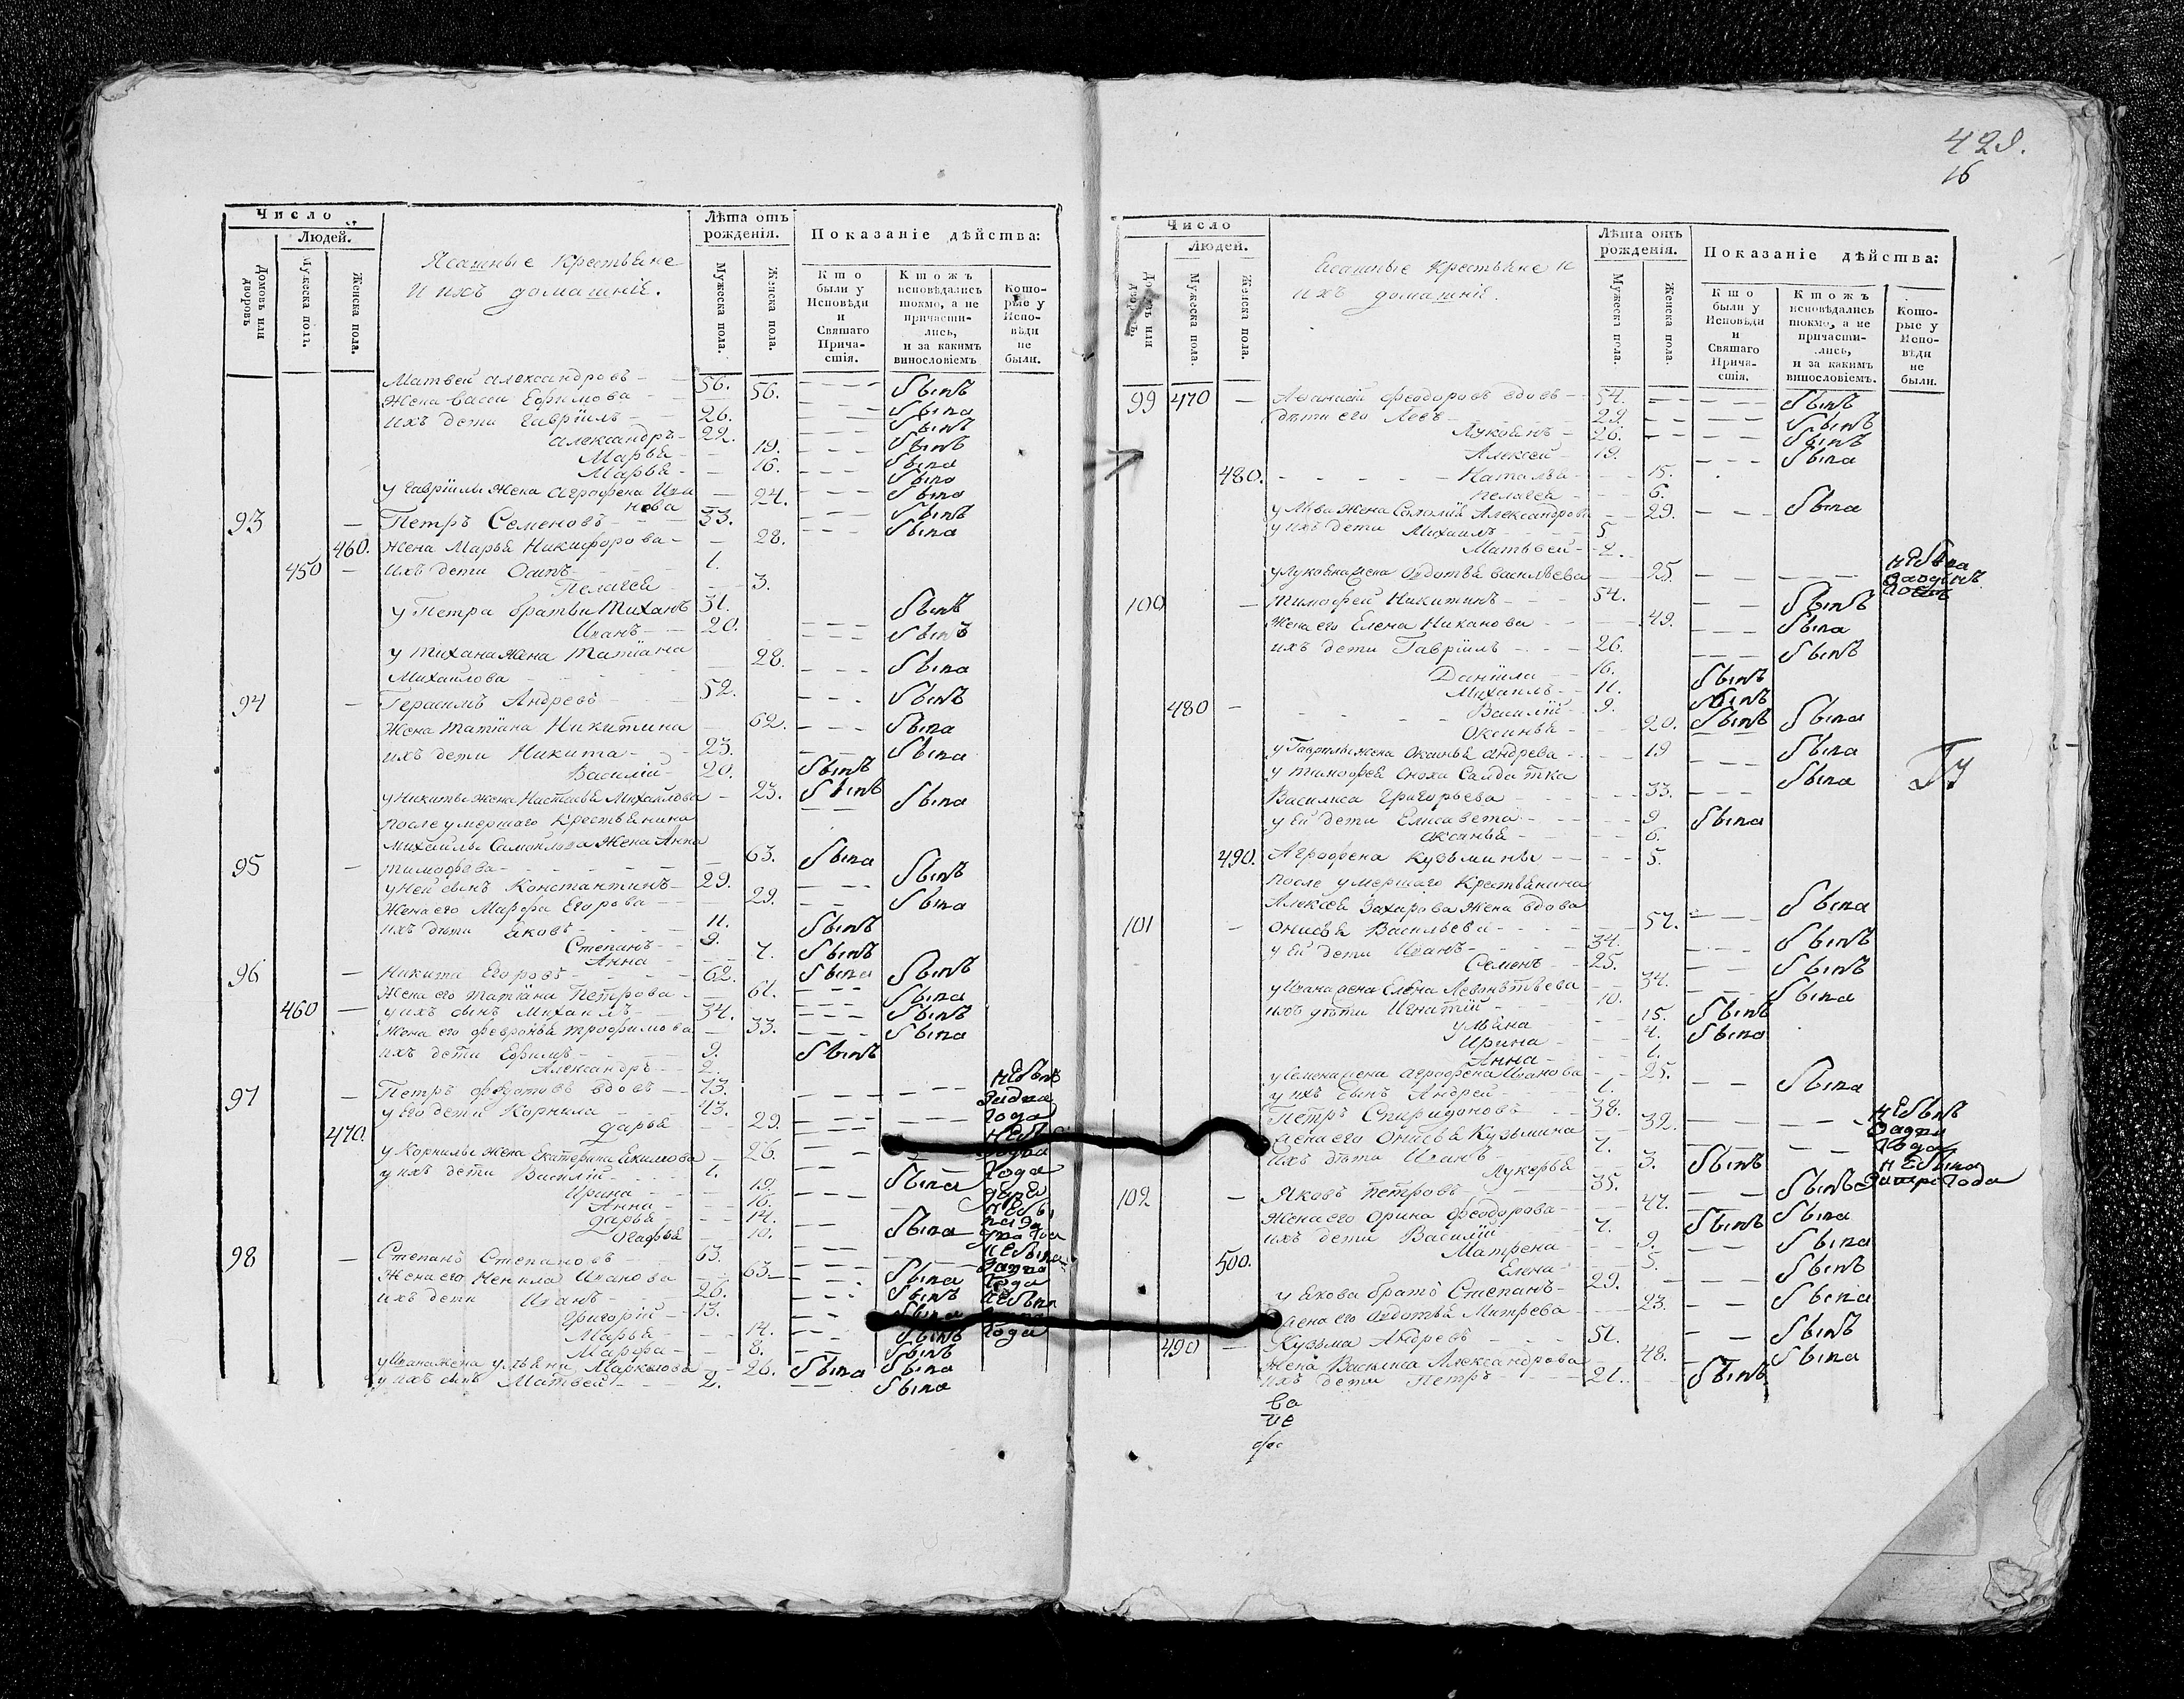 429.
16
Число
Людей.
Домовъ или дворовъ
Мужеска пола.
Женска пола.
Ясашные Крестьяне
И ихъ домашніе.
Лѣта отъ рожденія.
Мужеска пола.
Женска пола.
Показаніе дѣйства:
Кто были у Исповѣди и Святаго Причастія.
Ктожъ исповѣдались токмо, а не причастились, и за какимъ винословіемъ
Которые у Исповѣди не были.
Матвей Александровъ 56. былъ
Жена Васса Ефимова 56. была
Ихъ дети Гаврилъ 26. былъ
Александръ 22. былъ
Марья 19. была
Марья 16. была
у Гаврилы Жена Аграфена Ива
нова 24. была
93 Петръ Семеновъ 33. былъ
460. Жена Марья Никифорова 28. была
450 Ихъ дети Осипъ 1.
Пелагея 3.
у Петра братьи Тиханъ 31. былъ
Иванъ 20. былъ
у Тихана Жена Татіана
Михайлова 28. была
94 Герасимъ Андреевъ 52. былъ
Жена Татіана Никитина 62. была
ихъ дети Никита 23. была
Василій 20. былъ
у Никиты жена Настасья Михайлова 23. былъ была
После умершаго Крестьянина
Михайлы Самойлова Жена Анна
95 Тимофеева 63. была
у Ней сынъ Константинъ 29. былъ
Жена его Марфа Егорова 29. была
ихъ дети Яковъ 11. былъ
Степанъ 9. былъ
Анна 7. была
96 Никита Егоровъ 62. былъ
Жена его Татіана Петрова 61. была
460 у ихъ сынъ Михаилъ 34. былъ
Жена его Февронья Трофимова 33. была
ихъ дети Ефимъ 9. былъ
Александръ 2.
97 Петръ вдовъ 73. не былъ
у его дети Корнила 43. года
470. Дарья 29.
у Корнилы жена Екатерина 26. года
у ихъ дети Василій 1.
Ирина 19. была
Анна 16.
Дарья 14. была
Агафья 10.
98 Степанъ Степановъ 63. не была
Жена его Ненила Иванова 63. была года
ихъ дети Иванъ 26. былъ не была
Григорій 13.
Марья 14. былъ года
Марфа 8. былъ
у Ивана жена Ульяна 26. была была
у ихъ сынъ Матвей 2. была
Число
Людей.
Домовъ или дворовъ.
Мужеска пола.
Женска пола.
Ясашные Крестьяне и
ихъ домашніе.
Лѣта отъ рожденія.
Мужеска пола.
Женска пола.
Показаніе дѣйства:
Кто были у Исповѣди и Святаго Причастія.
Ктожъ исповѣдались токмо, а не причастились, и за какимъ винословіемъ.
Которые у Исповѣди не были.
99 470 Афанасій Феодоровъ вдовъ 54. былъ
дети его Левъ 29. былъ
Лукоянъ 26. былъ
Алексей 19. была
480. Наталья 15.
Пелагея 6.
у Льва жена Александрова 29. была
у ихъ дети Михаилъ 5
Матвей 2.
у Лукояна жена Авдотья Васильева 25. не была
100 Тимофей Никитинъ 54. былъ
Жена его Елена 49. была
ихъ дети Гаврилъ 26. былъ
Данила 16. былъ
Михаилъ 11. былъ
480 Василій 9. былъ
Оксинья 20. была
у Гаврилы жена Оксинья Андреева 19 была
у Тимофея сноха Салдатка
Василиса Григорьева 33. была
у Ей дети Елисавета 9 была
Оксинья 6.
490. Аграфена Кузьмины 5.
После умершаго Крестьянина
Алексея Захарова Жена вдова
101 Онисья Васильева 57. была
у Ей дети Иванъ 34. былъ
Семенъ 25. былъ
у Ивана жена Елена 34. была
ихъ дети Игнатій 10. былъ
Ульяна 15. была
Ирина 4.
Анна 1.
у Семена жена Аграфена Иванова 25. была
у ихъ сынъ Андрей 1.
Петръ Спиридоновъ 38. не былъ
Жена его Онисья Кузьмина 32. года
ихъ дети Иванъ 7. былъ не была
Лукерья 3.
102 Яковъ Петровъ 35. былъ
Жена его Орина Феодорова 47. была
ихъ дети Василій 7. былъ
Матрена 9. была
500. Елена 5.
у Якова братъ Степанъ 29. былъ
Жена его Авдотья Митрева 23. была
490 Кузьма Андреевъ 51. былъ
Жена Василиса Александрова 48. была
ихъ дети Петръ 21. былъ